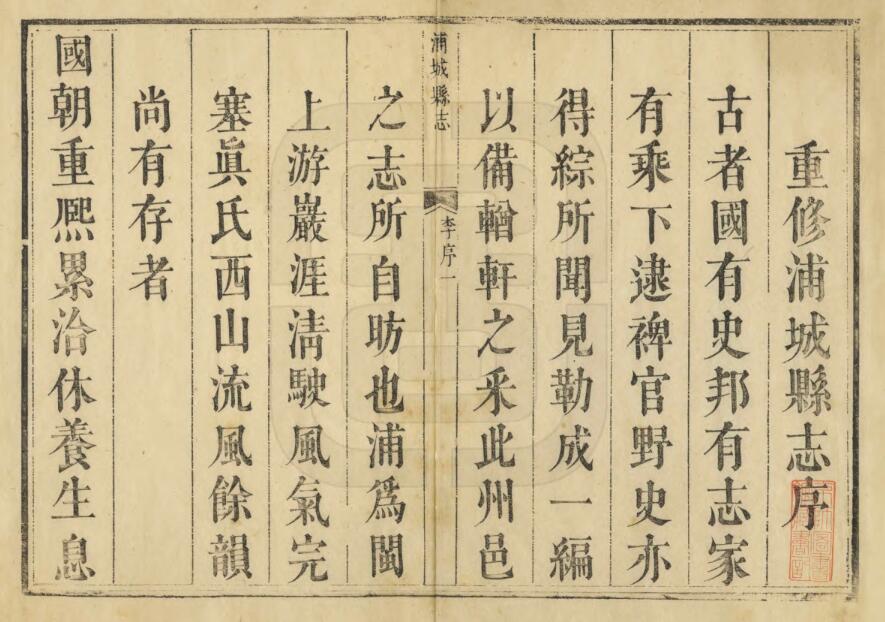 重修浦城縣志序
古者國有史邦有志家
有乘下逮裨官野史亦
得綜所聞見勒成一編
以備輶軒之采此州邑
浦城縣志
李序一
之志所自昉也浦爲閩
上游巖涯清駛風氣完
塞眞氏西山流風餘韻
尚有存者
國朝重熈累洽休養生息